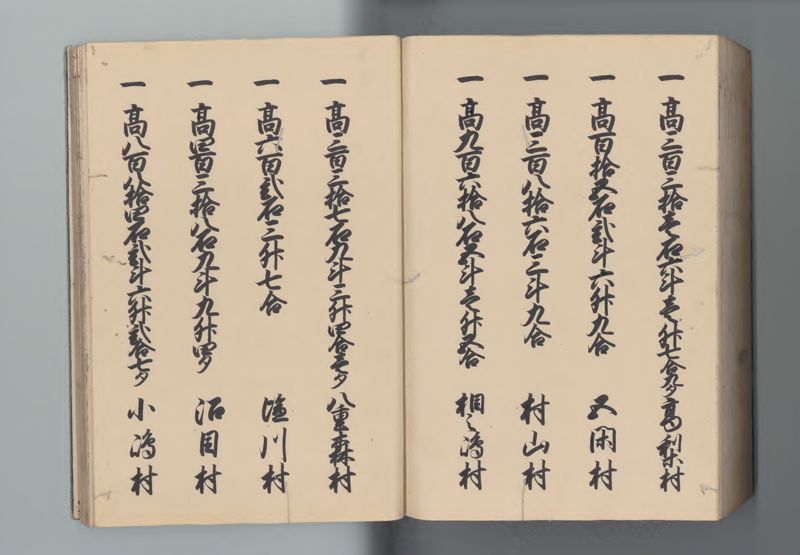 一 高三百三拾壱石六斗壱升七合九夕 高梨村
一 高百拾五石弐斗六升九合 五閑村
一 高三百八拾六石三斗九合 村山村
一 高九百六拾八石五斗壱升五合 相之嶋村
一 高三百三拾七石九斗三升四合壱夕 八重森村
一 高六百弐石三升七合 塩川村
一 高四百三拾八石九斗九升四夕 沼目村
一 高八百八拾四石弐斗六升弐合七夕 小嶋村